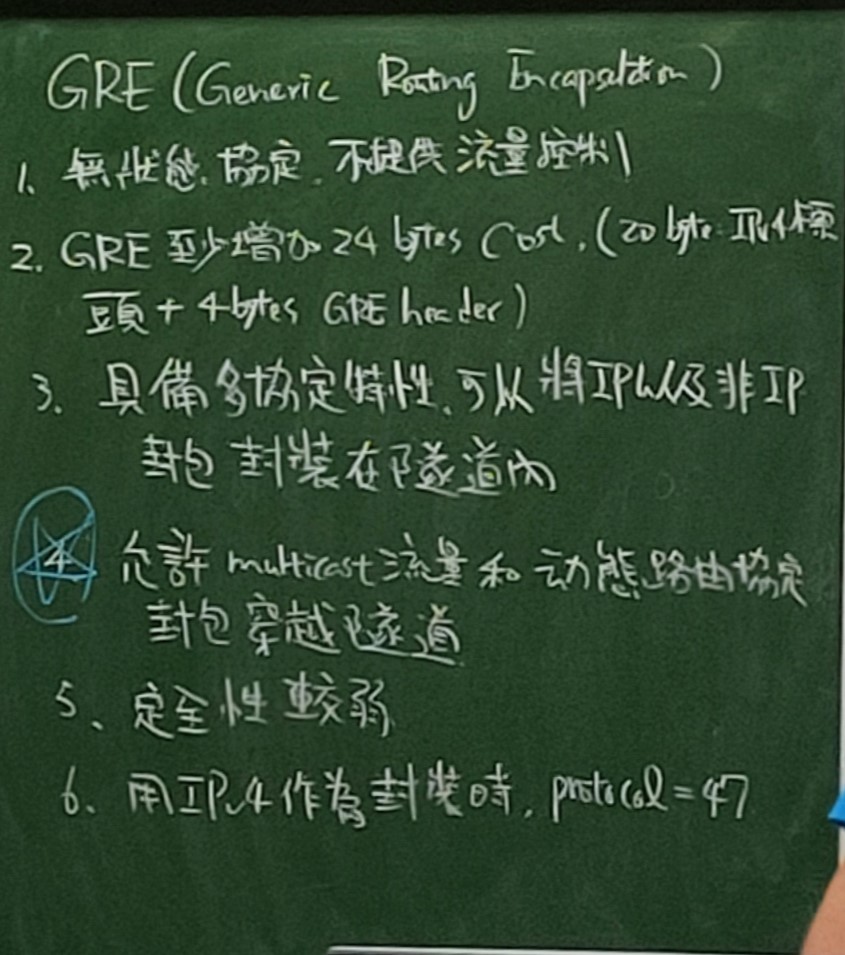 GRE (Generic Routing Encapsulation)
1、無狀態協定，不提供流量控制
2. GRE 至少增加 24 bytes cost,(20 byte IPv4標
頭 + 4 bytes GRE header)
3. 具備多協定特性、可以將IP以及非IP
封包封裝在隧道內
4 允許 multicast流量和动態路由協定
封包穿越隧道
5、定全性較弱
6、用IPv4作為封裝時, protocol=47